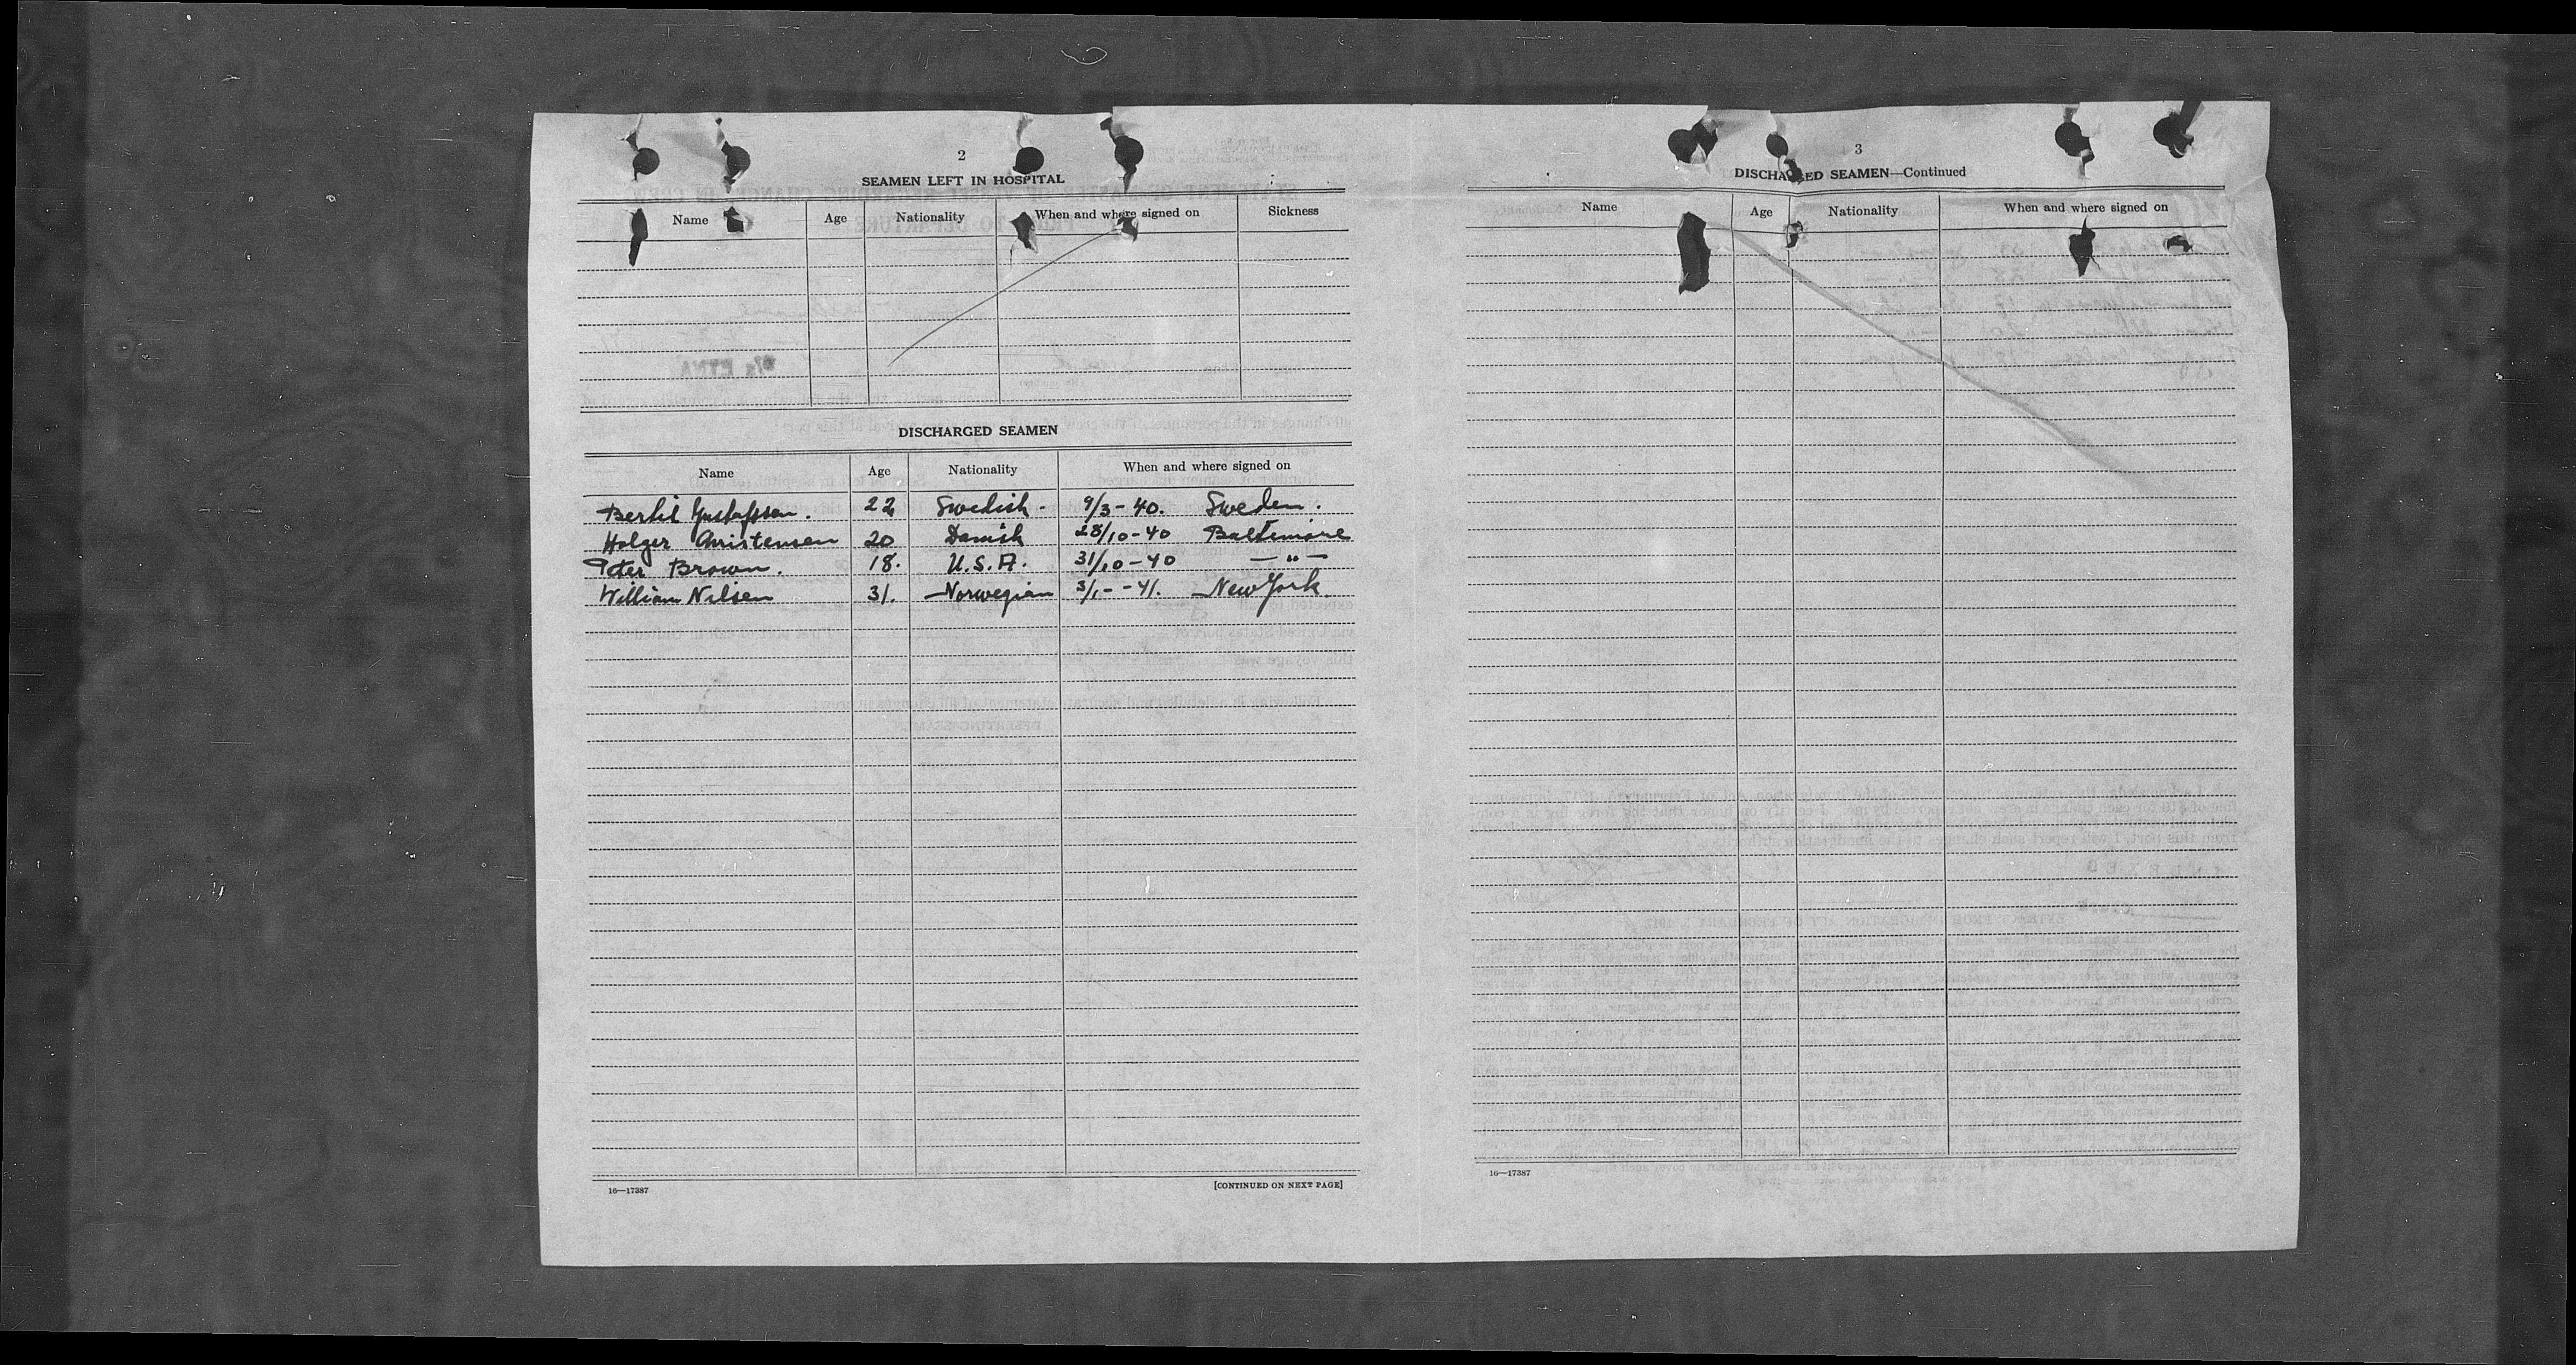 2
SEAMEN LEFT IN HOSPITAL
Name Age Nationality When and where signed on Sickness
DISCHARGED SEAMEN
Name Age Nationality When and where signed on
Bertil Gustafsson. 22 Swedish - 9/3-40. Sweden.
Holger Christensen 20 Danish 28/10-40 Baltimore
Peter Brown. 18. U.S.A. 31/10-40 — " —
William Nilsen 31. Norwegian 3/1--41. New York.
16—17387 [CONTINUED ON NEXT PAGE]
3
DISCHARGED SEAMEN—Continued
Name Age Nationality When and where signed on
16—17387